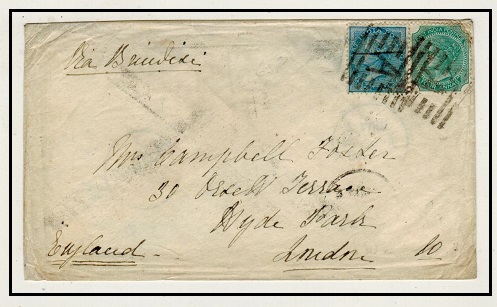 Via Brindisi
Mrs Campbell Foster
30 Orsett Terrace
Hyde Park
England
London W.